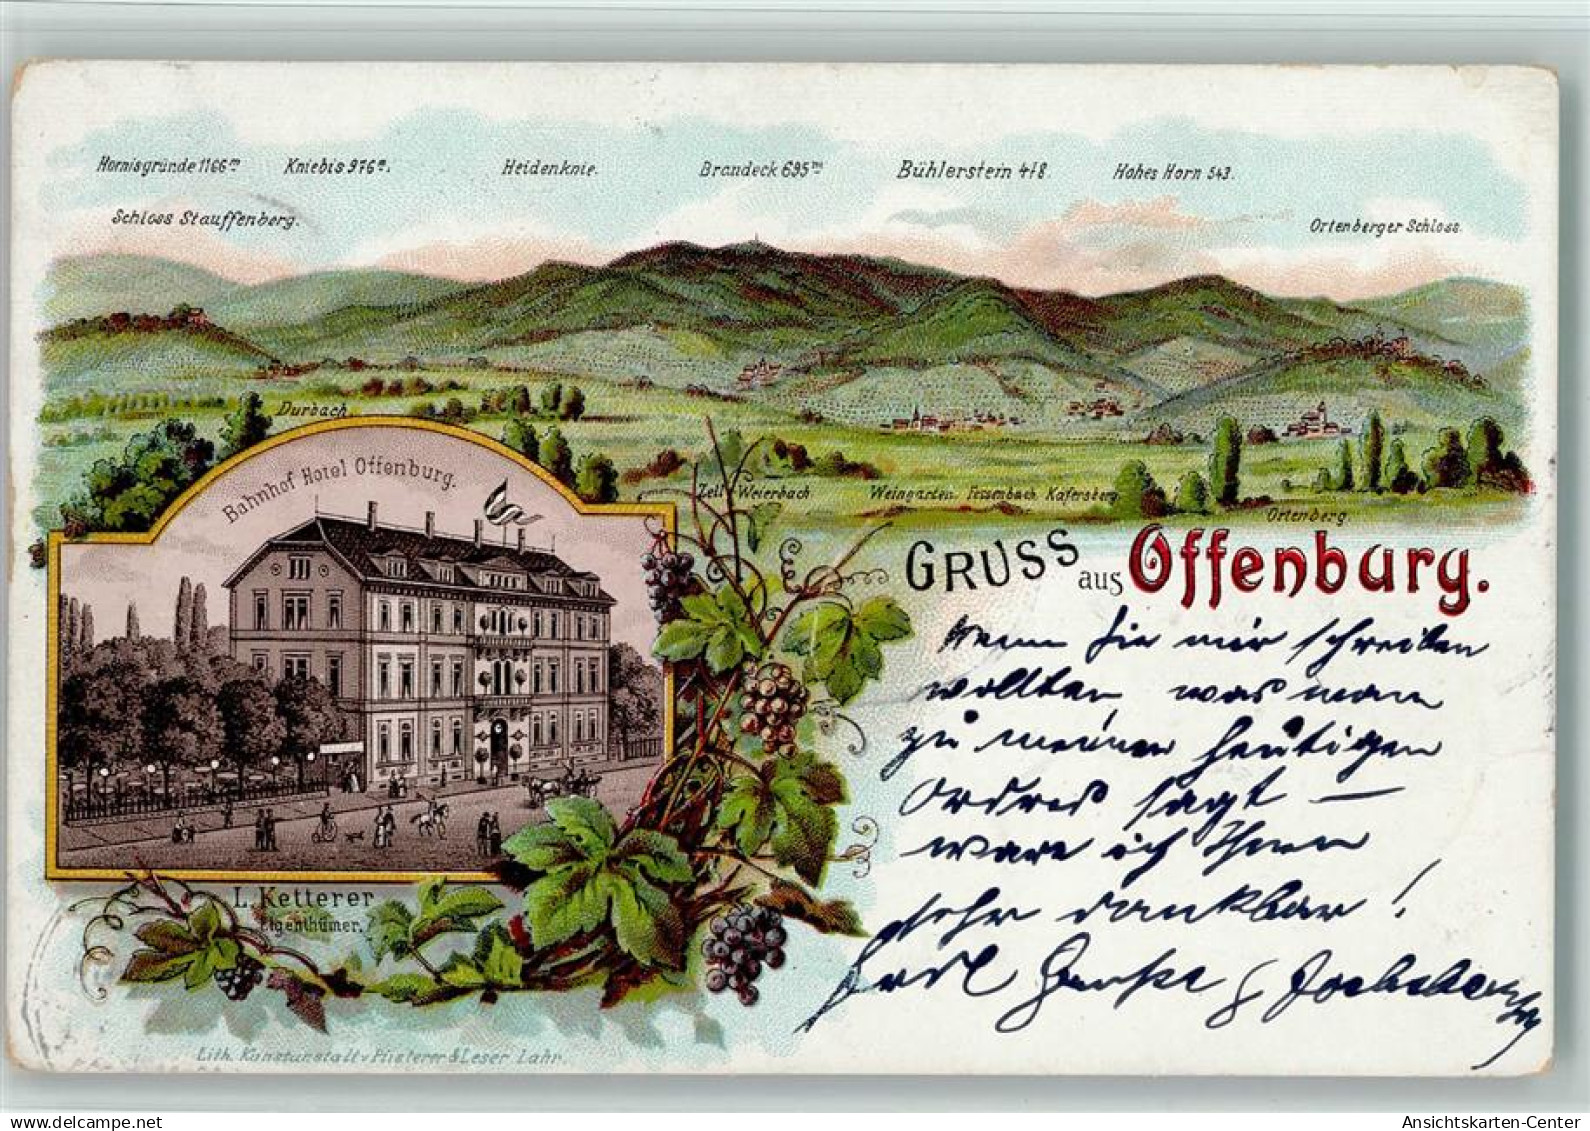 Hornisgründe 1166m
Kniebis 976m.
Heidenknie.
Brandeck 695m
Bühlerstein 418.
Hohes Horn 543.
Schloss Stauffenberg.
Ortenberger Schloss.
Durbach
Zell-Weierbach
Weingarten. Fessenbach. Kafersberg
Ortenberg.
Bahnhof Hotel Offenburg.
GRUSS aus Offenburg.
Wenn Sie mir schreiben
wollten, was man
zu meiner heutigen
Ordres sagt —
wäre ich Ihnen
sehr dankbar!
L. Ketterer
Eigenthümer.
Lith. Kunstanstalt v. Pfisterer & Leser Lahr.
Ansichtskarten-Center